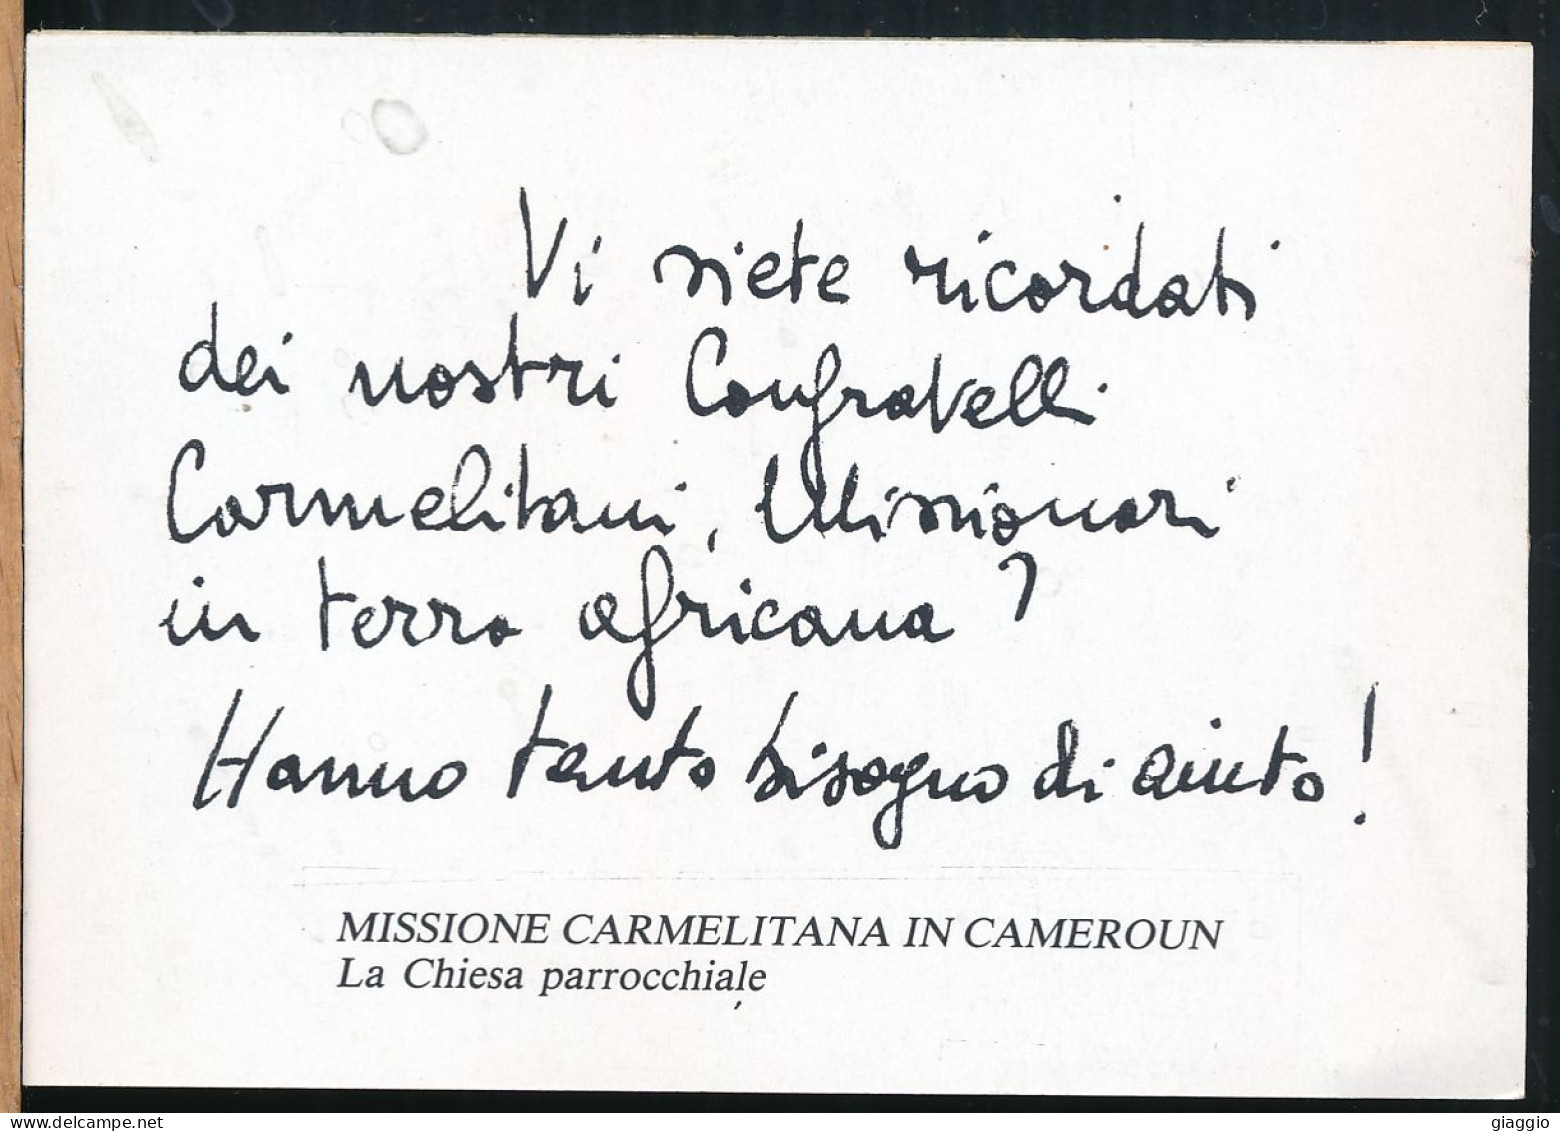 Vi siete ricordati
dei nostri Confratelli
Carmelitani, Missionari
in terra africana?
Hanno tanto bisogno di aiuto!
MISSIONE CARMELITANA IN CAMEROUN
La Chiesa parrocchiale
giaggio